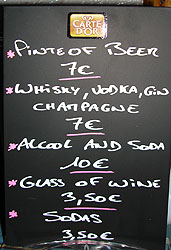 CARTE
D'OR
* PINTE OF BEER
7€
* WHISKY, VODKA, GIN
CHAMPAGNE
7€
* ALCOOL AND SODA
10€
* GLASS OF WINE
3,50€
* SODAS
3,50€